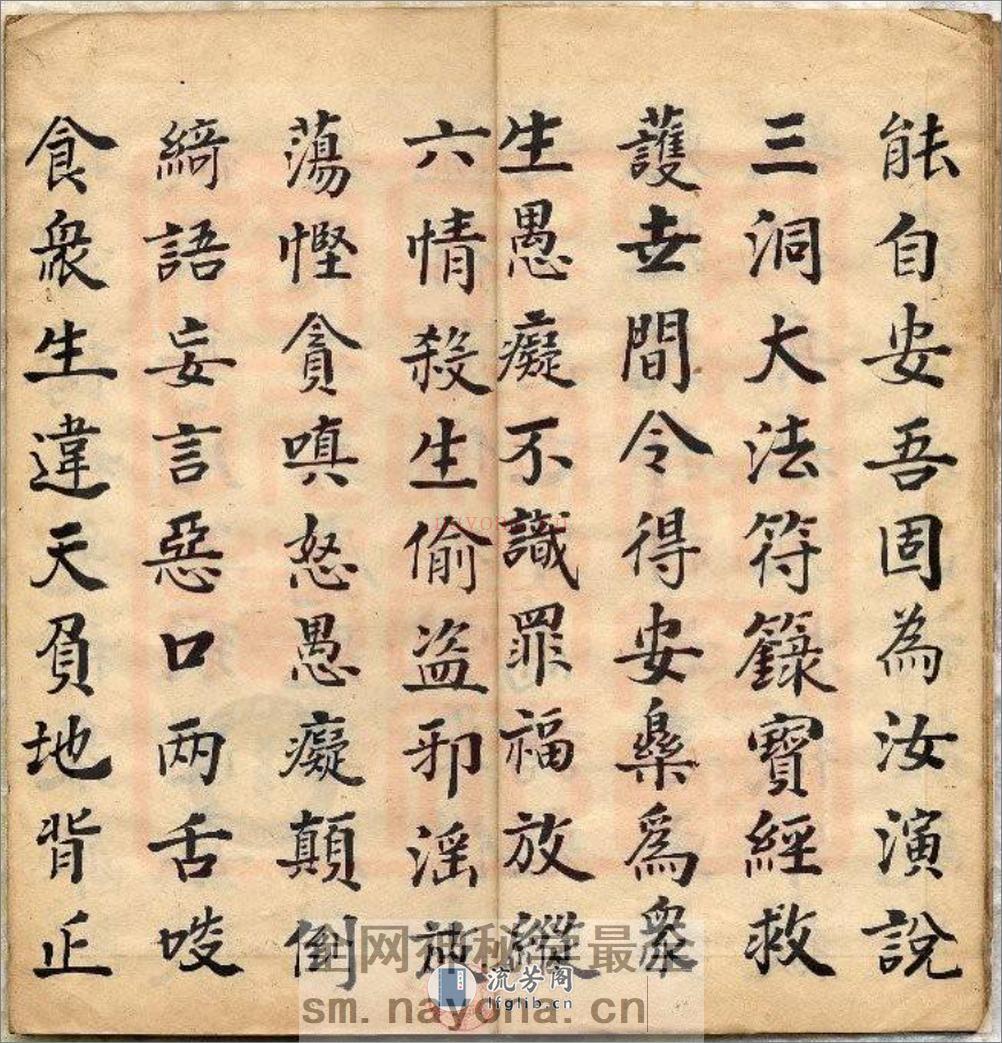 能自安吾固為汝演說
三洞大法符籙寳經救
護世間令得安樂爲衆
生愚癡不識罪福放縱
六情殺生偷盜邪淫放
蕩慳貪嗔怒愚癡顛倒
綺語妄言惡口兩舌啖
食衆生違天負地背正
nayona.cn
全网神秘学最全
流芳阁
lfglib.cn
sm.nayona.cn